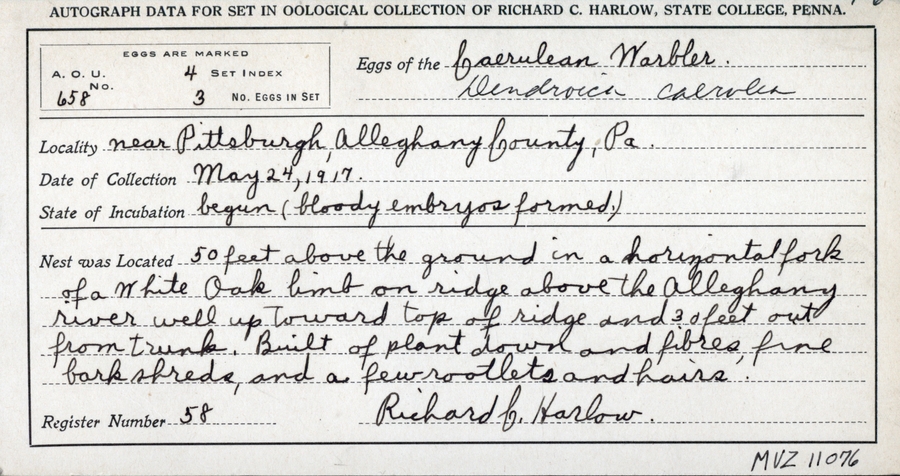 AUTOGRAPH DATA FOR SET IN OOLOGICAL COLLECTION OF RICHARD C. HARLOW, STATE COLLEGE, PENNA.
EGGS ARE MARKED
A. O. U. No. 658
4 SET INDEX
3 No. EGGS IN SET
Eggs of the Caerulean Warbler.
Dendroica caerulea
Locality near Pittsburgh, Alleghany County, Pa.
Date of Collection May 24, 1917.
State of Incubation begun (bloody embryos formed.)
Nest was Located 50 feet above the ground in a horizontal fork
of a White Oak limb on ridge above the Alleghany
river well up toward top of ridge and 30 feet out
from trunk. Built of plant down and fibres, fine
bark shreds, and a few rootlets and hairs.
Register Number 58
Richard C. Harlow.
MVZ 11076